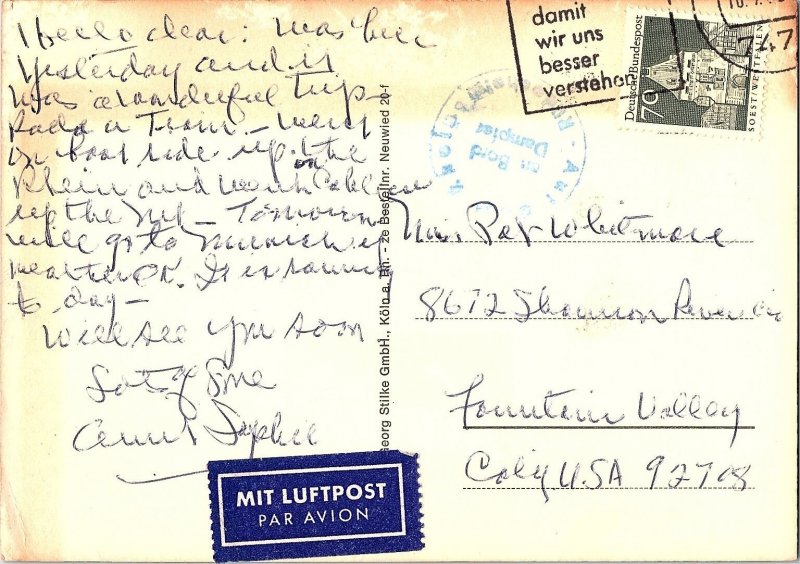 Hello dear: Was here
Yesterday and it
was a wonderful trip -
Rode a Train - Went
on boat ride up the
on
Rhein and went Cable
up the Mt - Tomorrow
will go to Munich if
weather OK. It is raining
to day -
Will see you soon
Lots of Love
Aunt Sophie
damit
wir uns
besser
verstehen
10.7.
747
Deutsche Bundespost
70
SOEST/WESTFALEN
an Bord
Dampfer
Georg Stilke GmbH., Köln a. Rh. - ze Bestellnr. Neuwied 20-f
Mrs. Pat Whitmore
8672 Shannon River Cir
Fountain Valley
Calif USA 92708
MIT LUFTPOST
PAR AVION